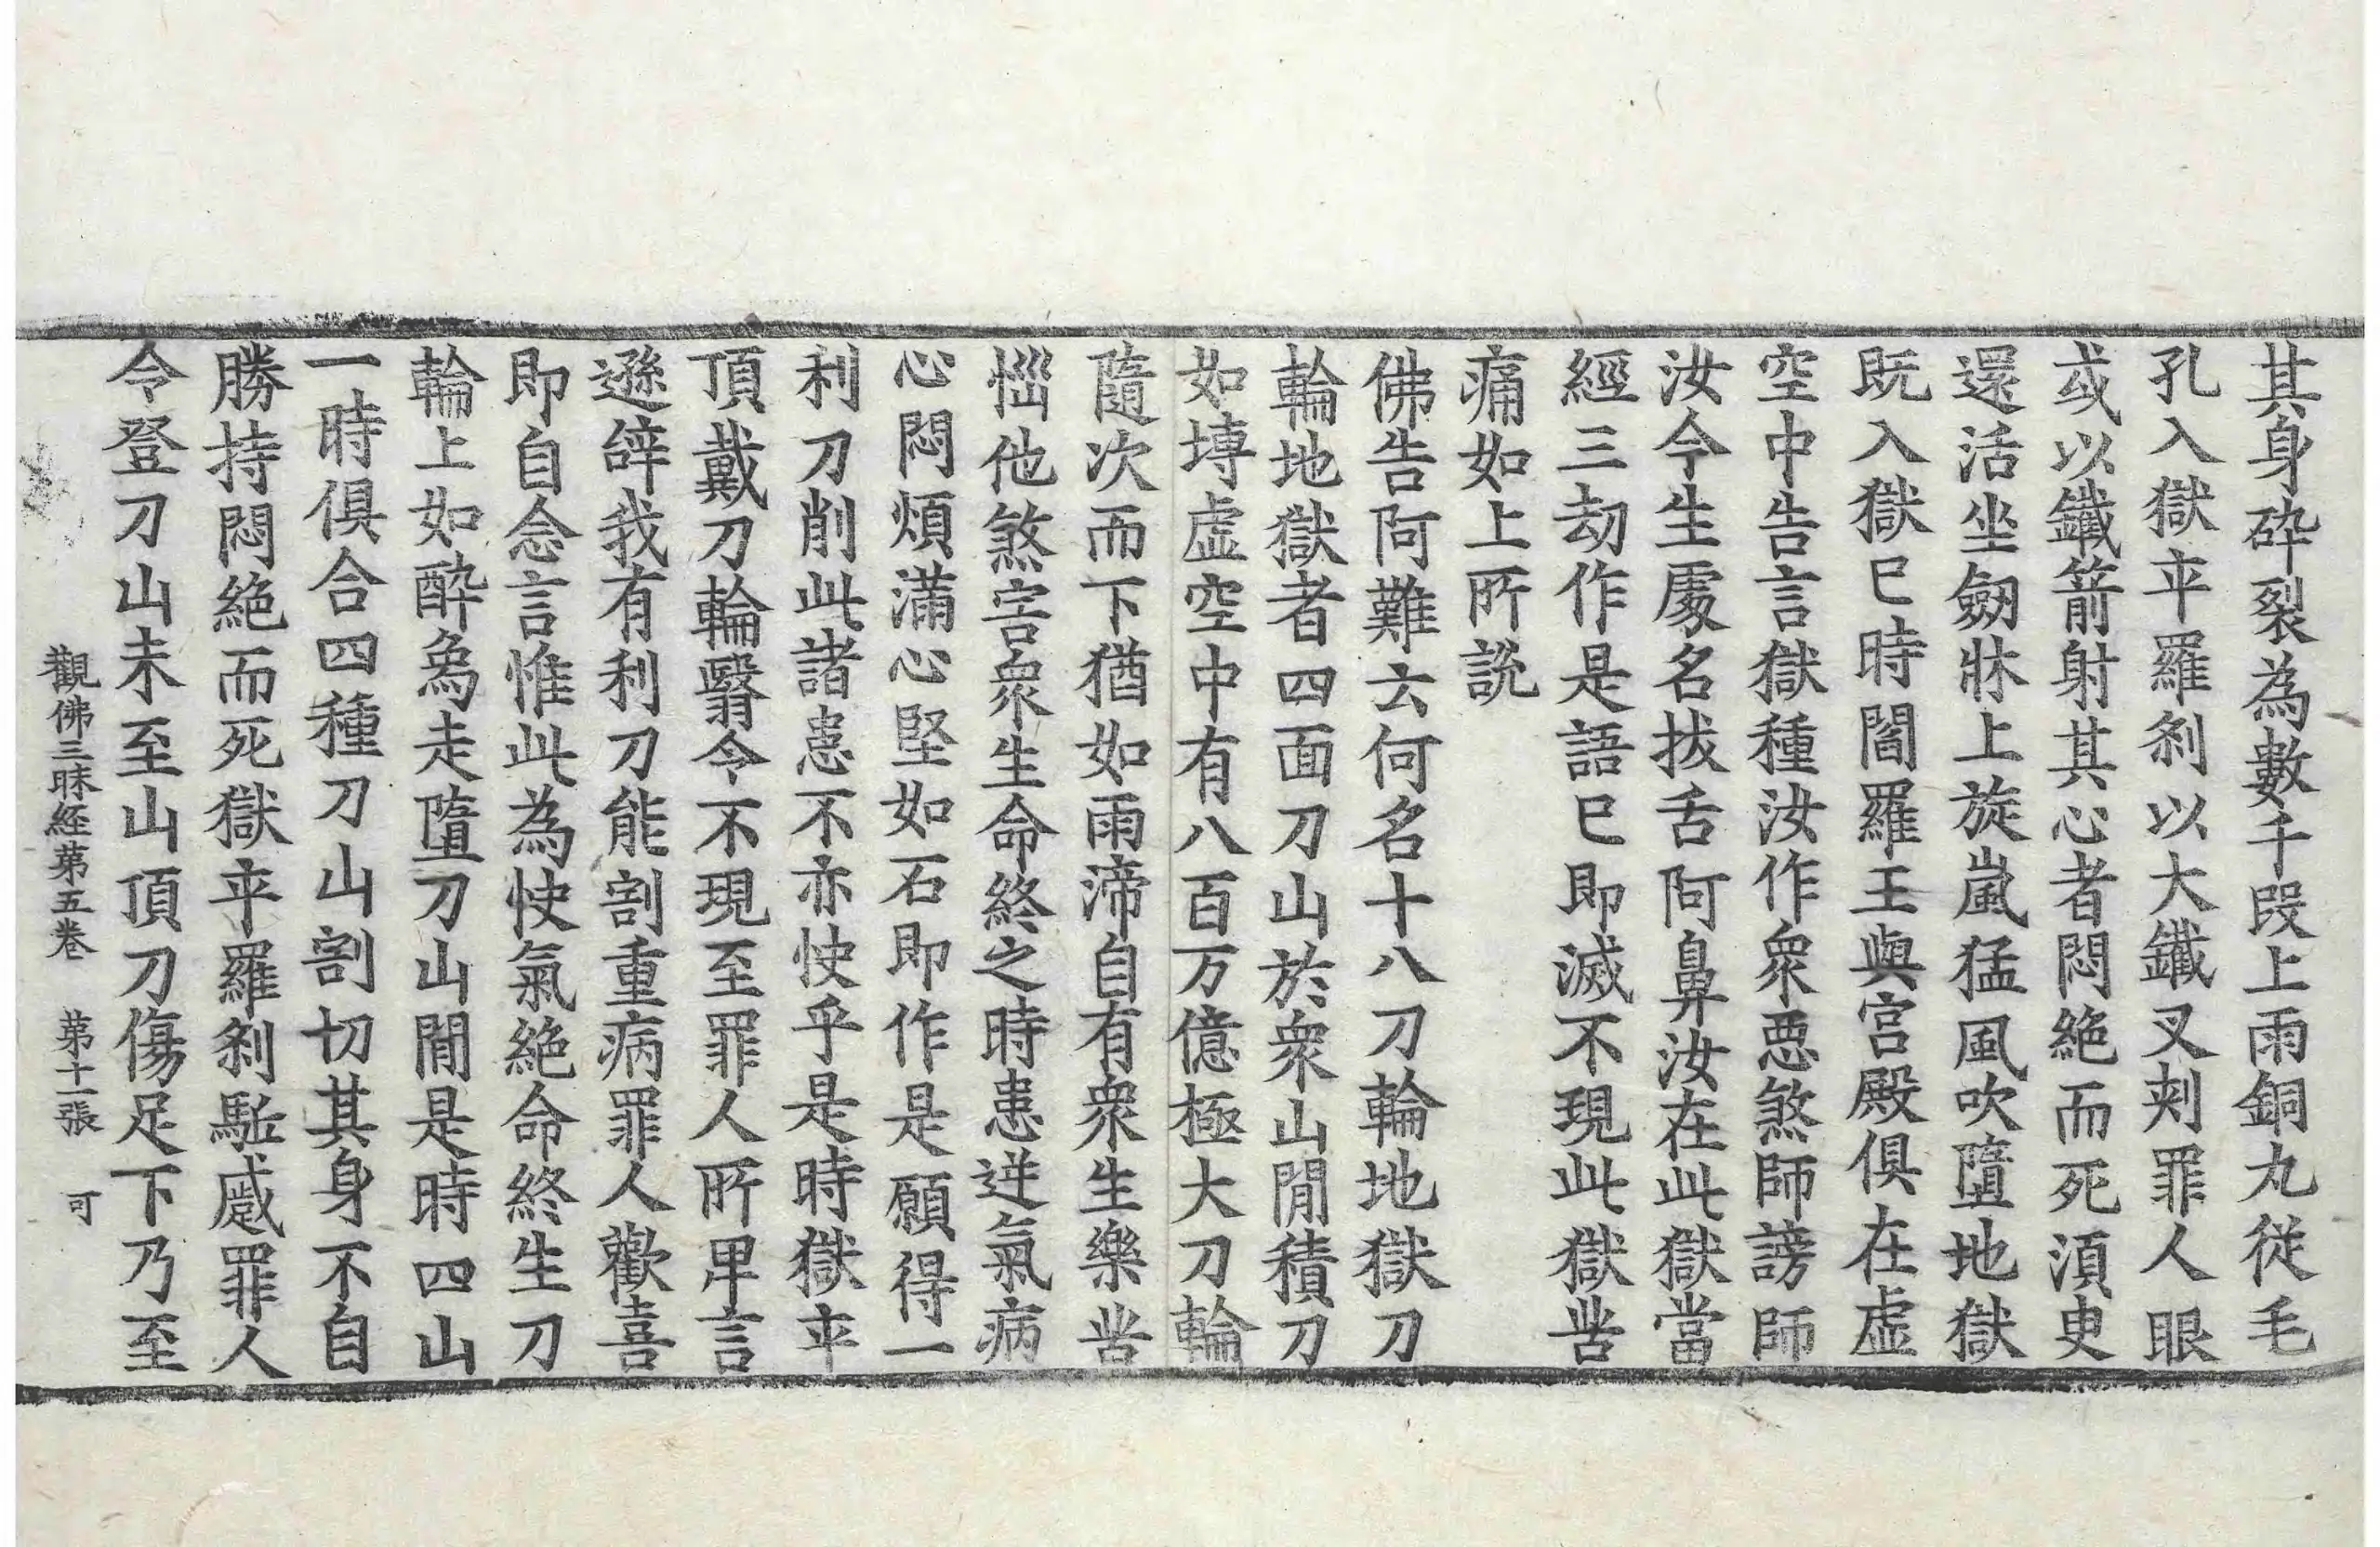 其身碎裂為數千段上雨銅丸從毛
孔入獄卒羅刹以大鐵叉刾罪人眼
或以鐵箭射其心者悶絶而死湏臾
還活坐劒牀上旋嵐猛風吹墮地獄
既入獄已時閻羅王與宫殿俱在虚
空中告言獄種汝作衆惡煞師謗師
汝今生處名拔舌阿鼻汝在此獄當
經三劫作是語已即滅不現此獄苦
痛如上所説
佛告阿難云何名十八刀輪地獄刀
輪地獄者四面刀山於衆山間積刀
如塼虚空中有八百万億極大刀輪
隨次而下猶如雨渧自有衆生樂苦
惱他煞害衆生命終之時患逆氣病
心悶煩滿心堅如石即作是願得一
利刀削此諸患不亦快乎是時獄卒
頂戴刀輪翳令不現至罪人所卑言
遜辝我有利刀能割重病罪人歡喜
即自念言惟此為快氣絶命終生刀
輪上如醉象走墮刀山間是時四山
一時俱合四種刀山割切其身不自
勝持悶絶而死獄卒羅刹駈蹙罪人
令登刀山未至山頂刀傷足下乃至
觀佛三昧経苐五卷 苐十一張 可